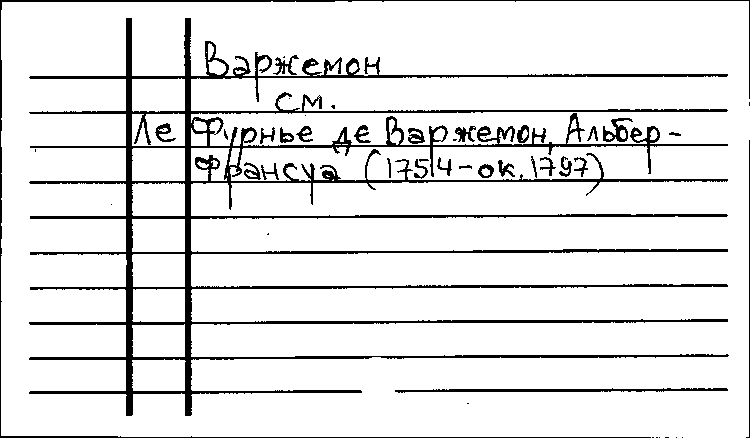 Варжемон
см.
Ле Фурнье де Варжемон, Альбер-
Франсуа (1754-ок. 1797)